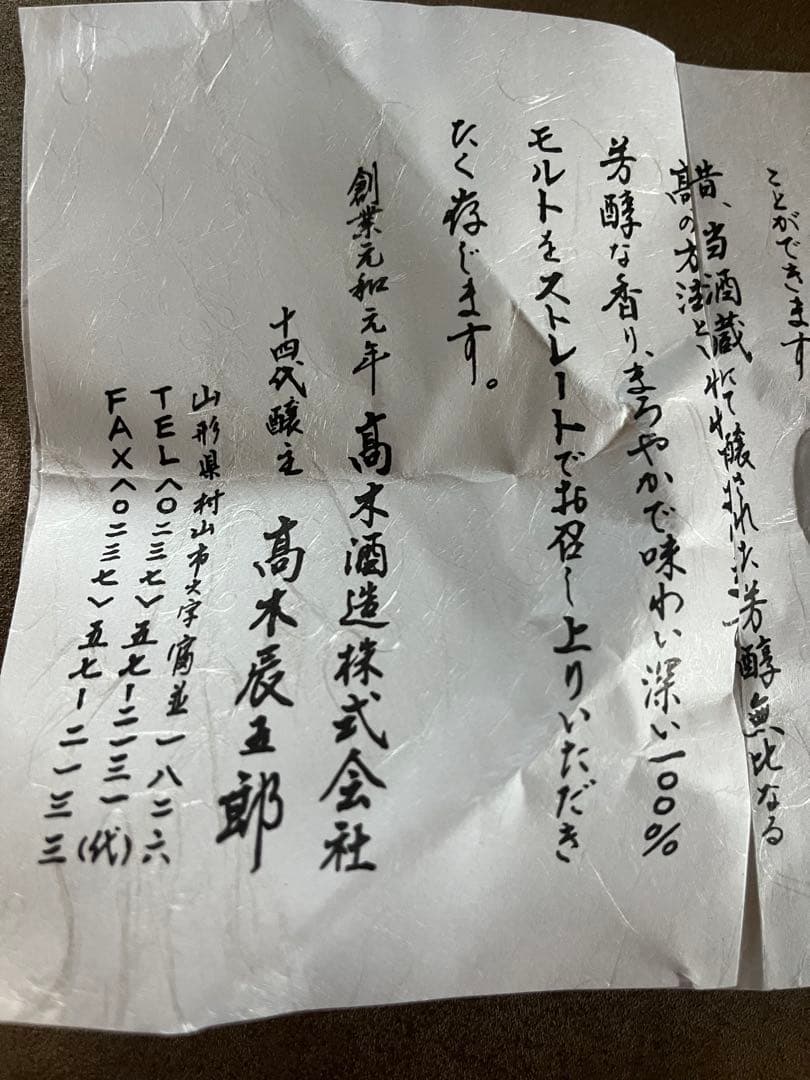 ことができます
昔、当酒蔵にて醸された芳醇無比なる
高の方法といわれ
芳醇な香り、まろやかで味わい深い一〇〇%
モルトをストレートでお召し上りいただき
たく存じます。
創業元和元年 髙木酒造株式会社
十四代醸主 髙木辰五郎
山形県村山市大字富並一八二六
TEL(〇二三七)五七ー二一三一(代)
FAX(〇二三七)五七ー二一三三